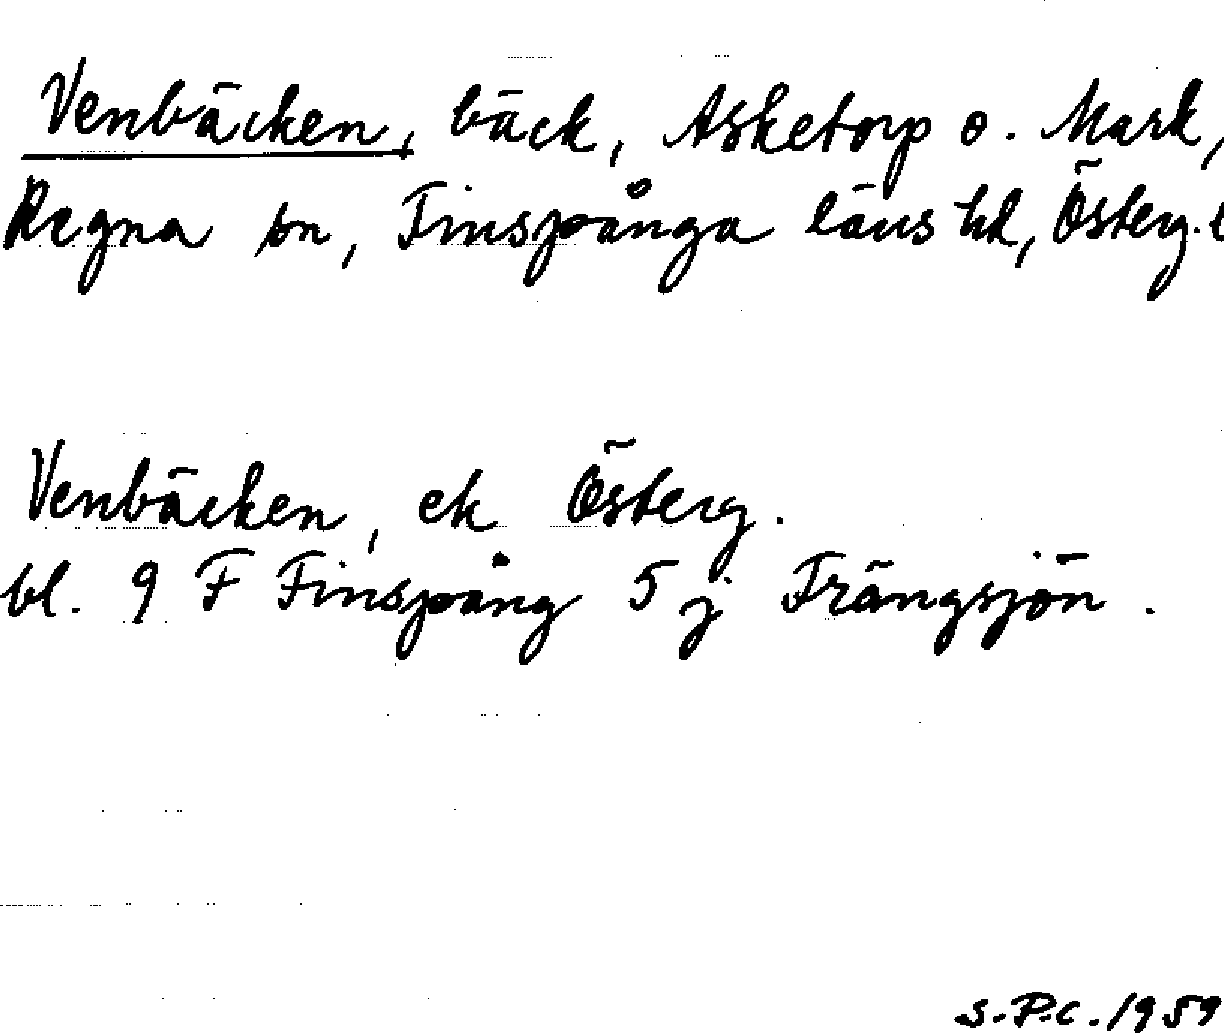 Venbäcken, bäck, Asketorp o. Mark,
Regna sn, Finspånga läns hd, Österg. l
Venbäcken, ek Österg.
bl. 9 F Finspång 5 j Trängsjön.
S.P.C. 1959